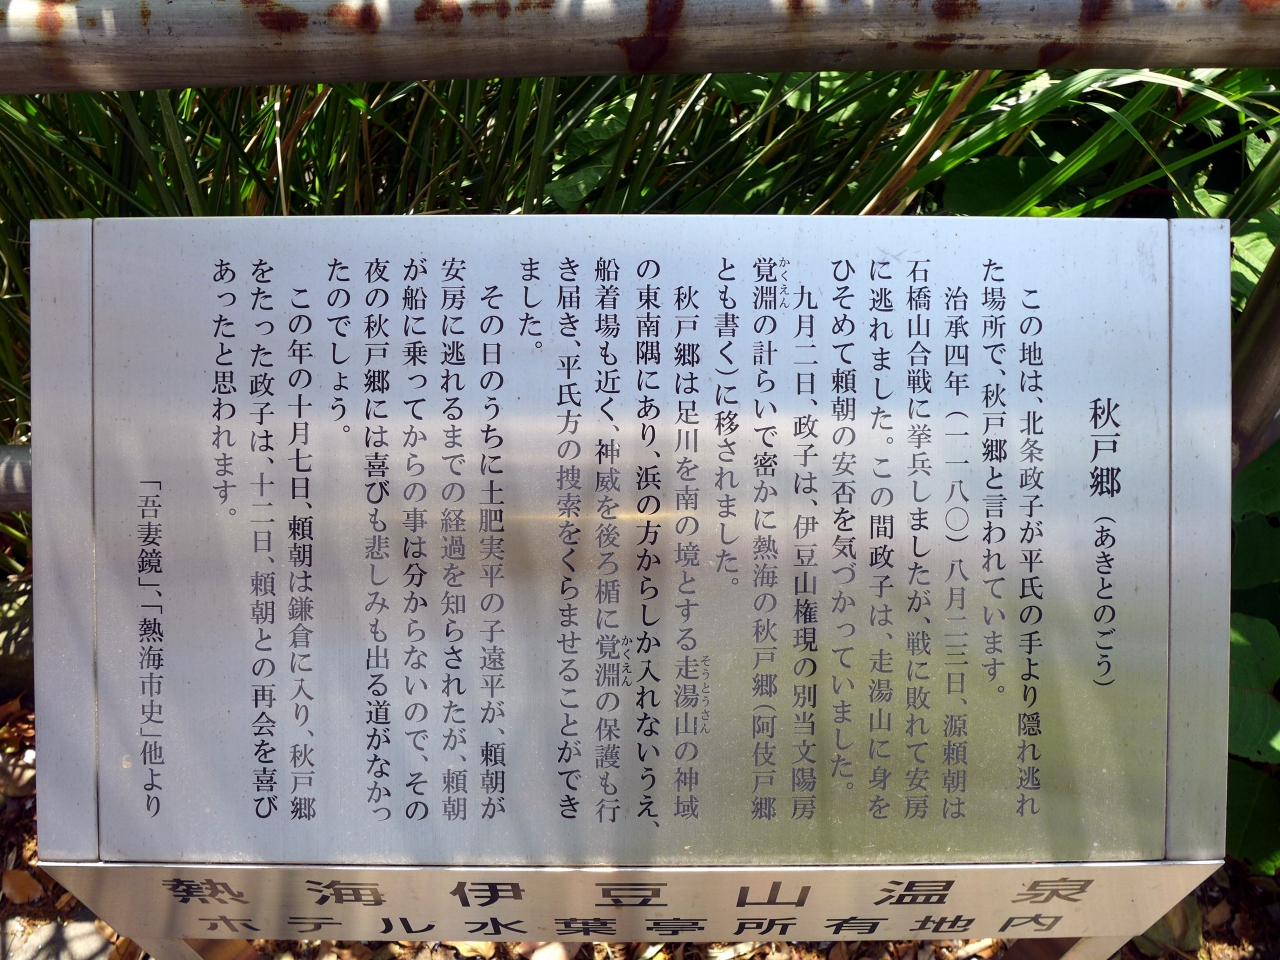 秋戸郷（あきとのごう）
この地は、北条政子が平氏の手より隠れ逃れ
た場所で、秋戸郷と言われています。
治承四年（一一八〇）八月二三日、源頼朝は
石橋山合戦に挙兵しましたが、戦に敗れて安房
に逃れました。この間政子は、走湯山に身を
ひそめて頼朝の安否を気づかっていました。
九月二日、政子は、伊豆山権現の別当文陽房
覚淵の計らいで密かに熱海の秋戸郷（阿伎戸郷
かくえん
とも書く）に移されました。
秋戸郷は足川を南の境とする走湯山の神域
そうとうさん
の東南隅にあり、浜の方からしか入れないうえ、
船着場も近く、神威を後ろ楯に覚淵の保護も行
かくえん
き届き、平氏方の捜索をくらませることができ
ました。
その日のうちに土肥実平の子遠平が、頼朝が
安房に逃れるまでの経過を知らされたが、頼朝
が船に乗ってからの事は分からないので、その
夜の秋戸郷には喜びも悲しみも出る道がなかっ
たのでしょう。
この年の十月七日、頼朝は鎌倉に入り、秋戸郷
をたった政子は、十二日、頼朝との再会を喜び
あったと思われます。
「吾妻鏡」、「熱海市史」他より
熱海伊豆山温泉
ホテル水葉亭所有地内